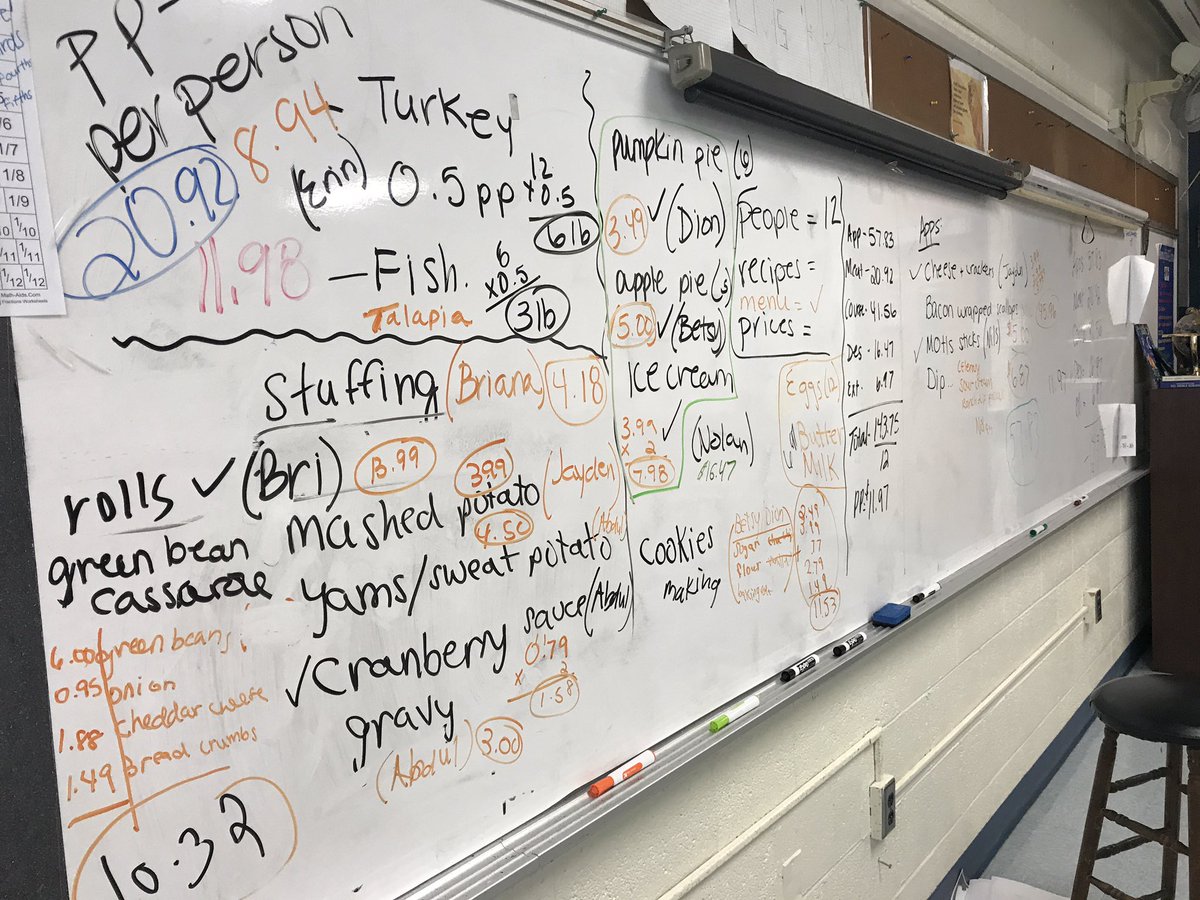 PP-
per person
20.92
8.94 - Turkey
(Enn) 0.5 pp
12
x0.5
6lb
11.98 - Fish.
Talapia
6
x0.5
3lb
Stuffing (Briana) 4.18
rolls ✓ (Bri) 3.99
3.99
mashed potato (Jayden)
4.50
green bean
cassarole
yams/sweat potato (Abdul)
✓ Cranberry sauce (Abdul)
0.79
x 2
1.58
gravy
(Abdul) 3.00
6.00 green beans
0.95 onion
1.88 cheddar cheese
1.49 bread crumbs
10.32
pumpkin pie (6)
3.49 ✓ (Dion)
apple pie
5.00 ✓ (Betsy)
Ice cream
3.99 ✓
x 2
7.98
(Nolan)
16.47
cookies
making
Betsy Dion
sugar
flour
2.79
1.49
11.53
people = 12
recipes =
menu = ✓
prices =
Eggs (12)
Butter
Milk
App - 57.83
Meat - 20.92
Course - 41.56
Des - 16.47
Ext - 6.97
Total - 143.75
12
PP: 11.97
Apps
✓ Cheese + crackers (Jayden)
Bacon wrapped scallops
45.96
✓ Motts sticks
5.00
Dip -
sour cream
6.87
1/6
1/7
1/8
1/9
1/10
1/11 1/11
1/12 1/12
Math-Aids.Com